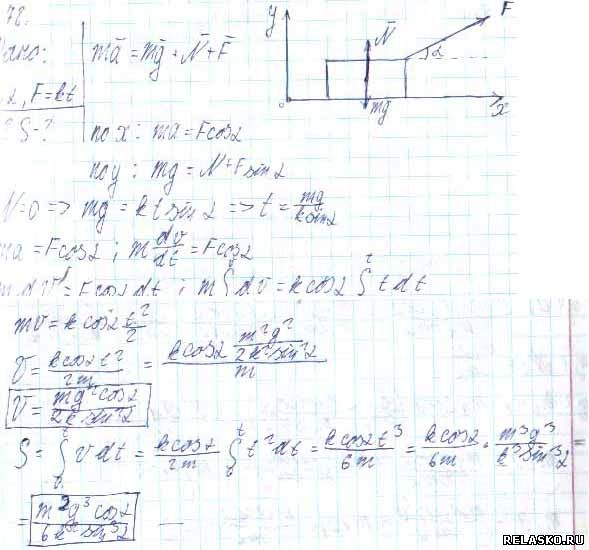 72.
y
F
N̄
α
mg
x
0
ано:
mā = mḡ + N̄ + F̄
α, F=kt
S-?
по x: ma = Fcosα
по y: mg = N + F sinα
N=0 => mg = kt sinα => t = mg/(k sinα)
ma = Fcosα; m dv/dt = Fcosα
m dv = Fcosα dt; m∫dv = k cosα ∫ t dt
mv = k cosα t²/2
V = k cosα t²/2m = k cosα m²g²/(2k² sin²α) / m
V = mg² cosα/(2k sin²α)
S = ∫ v dt = k cosα/2m ∫ t² dt = k cosα t³/6m = k cosα/6m · m³g³/(k³ sin³α) =
= m²g³ cosα/(6k² sin³α)
RELASKO.RU